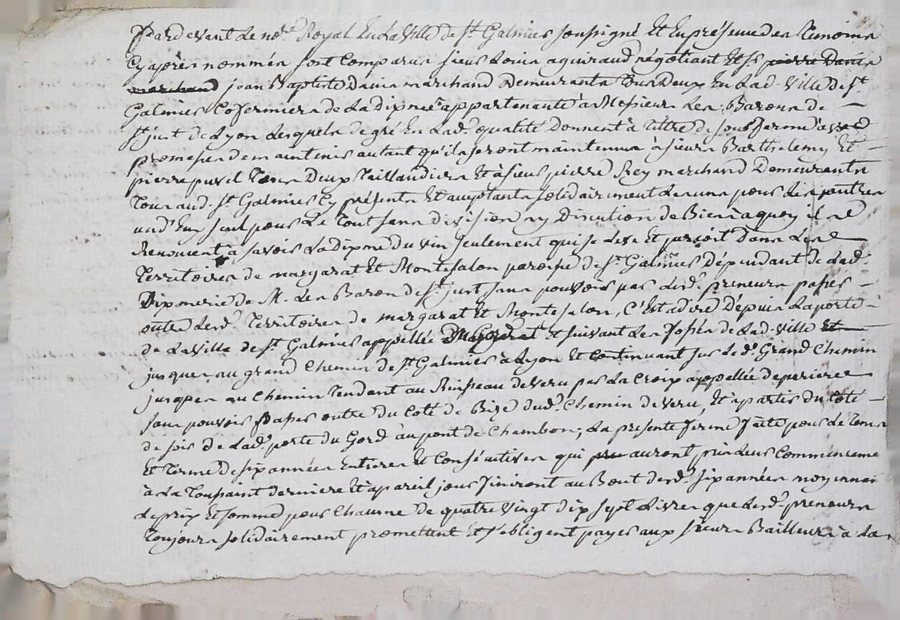 Pardevant le no.re Royal en la ville de S.t Galmier soussigné et en présence des témoins
cy après nommés sont comparus sieurs aguiraud négotiant et S.r pierre Danis
marchand jean Baptiste Danis marchand demeurants tous deux en lad. ville de S.t
Galmier cofermiers de la dixmerie appartenante à Messieurs les Barons de
S.t just de Lyon lesquels de gré en lad. qualité donnent à titre de sous ferme avec
promesse de maintenir autant qu'ils seront maintenus à sieurs Barthelemy et
pierre tous deux taillandiers et à sieur pierre Rey marchand demeurants
tous aud. S.t Galmier cy présents et acceptants solidairement les uns pour les autres
un d'eux seul pour le tout sans division ny discution de biens à quoy ils
renoncent, à savoir la dixme du vin seulement qui se leve et perçoit dans les
territoires de margarat et Montesalon paroisse de S.t Galmier dépendant de lad.
Dixmerie de M. les Barons de S.t just sans pouvoir par lesd. preneurs passer
outre lesd. territoires de margarat et Montesalon, C'est adire depuis la porte
de la ville de S.t Galmier appellée et suivant les fossés de lad. ville et
jusques au grand chemin de S.t Galmier à Lyon et continuant sur le d. Grand Chemin
jusques au chemin tendant au Ruisseau de veru par la croix appellée de
sans pouvoir passer outre du coté de Bize dud. Chemin de veru, et à partir du coté
de soir de lad. porte du Gord au pont de Chambon; La présente ferme faite pour le tems
et terme de six années entieres et consécutives qui auront pris leur commencement
à la Toussaint derniere et à pareil jour finiront au bout desd. six années moyennant
le prix et somme pour chacune de quatre vingt dix sept Livres que lesd. preneurs
toujours solidairement promettent et s'obligent payer aux sieurs Bailleurs à la